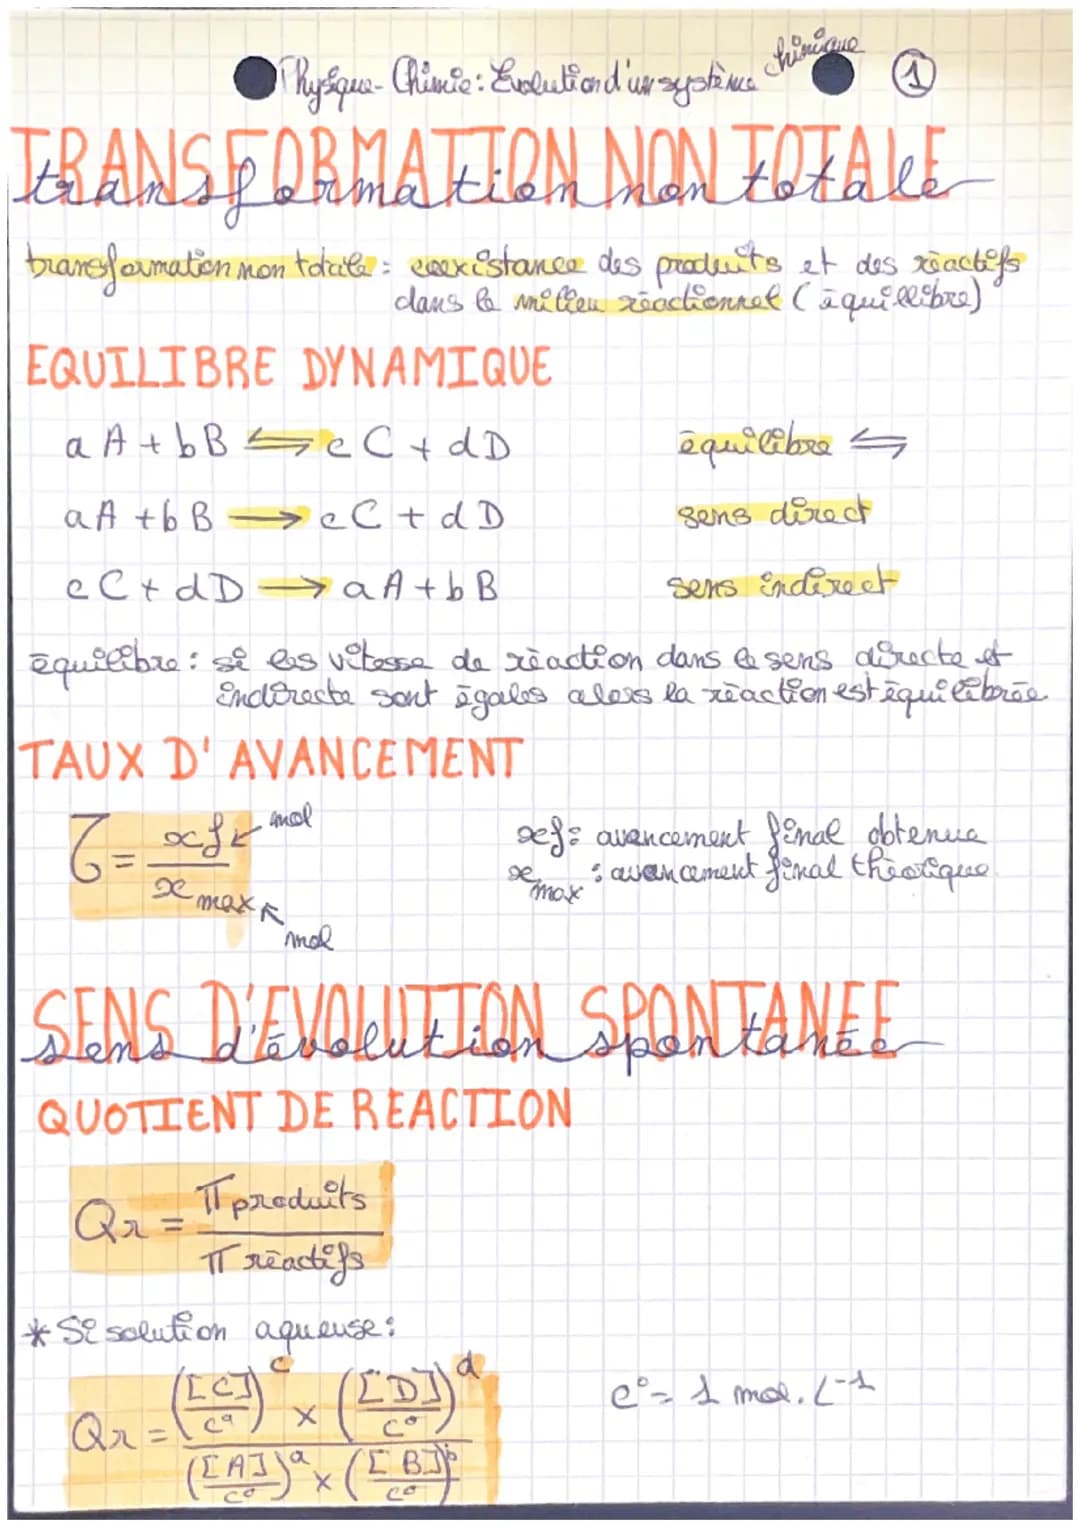 Physique-Chimie: Evolution d'un système chimique 1
TRANSFORMATION NON TOTALE
transformation non totale
transformation non totale : coexistance des produits et des réactifs
dans le milieu réactionnel (équillibre)
EQUILIBRE DYNAMIQUE
a A + b B ⇆ c C + d D équilibre ⇆
a A + b B → c C + d D sens direct
c C + d D → a A + b B sens indirect
équilibre : si les vitesse de réaction dans le sens directe et
indirecte sont égales alors la réaction est équilibrée
TAUX D'AVANCEMENT
τ = xf / x max
mol
mol
xf : avancement final obtenue
x max : avancement final théorique
SENS D'EVOLUTION SPONTANEE
sens d'évolution spontanée
QUOTIENT DE REACTION
Qr = π produits / π réactifs
* Si solution aqueuse :
Qr = (([C]/c°)^c × ([D]/c°)^d) / (([A]/c°)^a × ([B]/c°)^b)
c° = 1 mol.L⁻¹